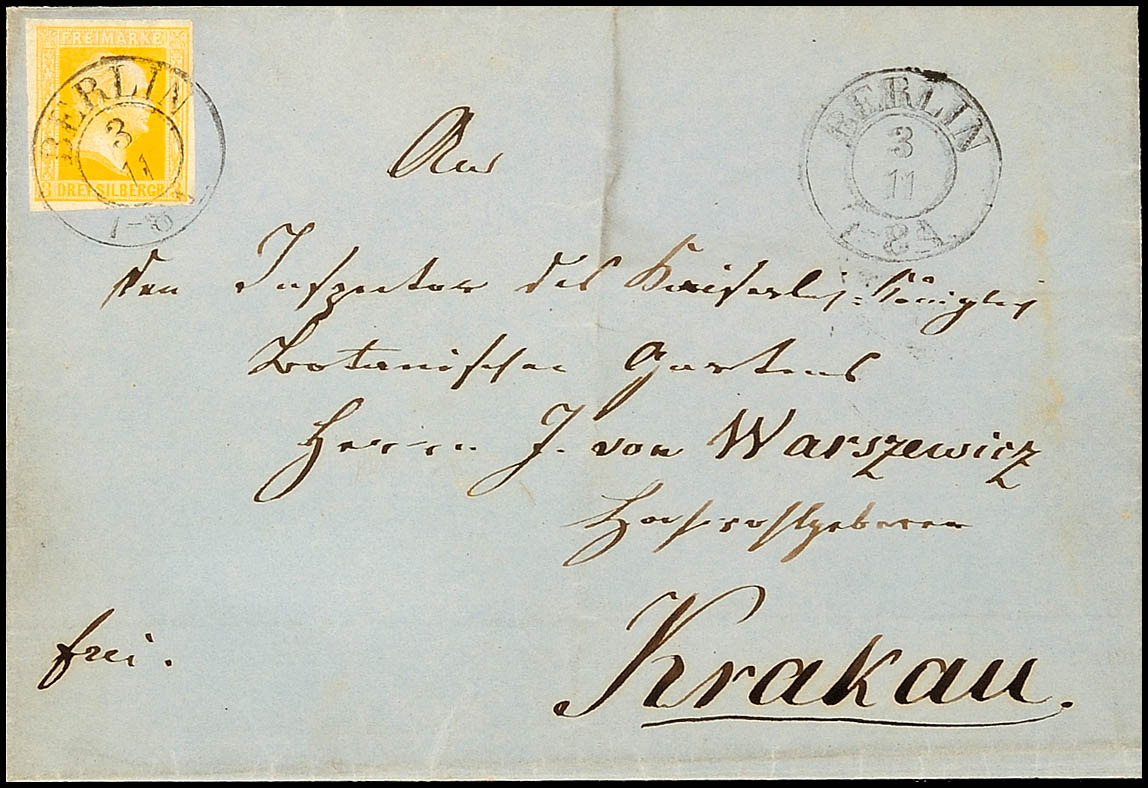 FREIMARKE
3 DREI SILBERGR. 3
BERLIN
3
11
7-8
BERLIN
3
11
7-8A.
An
den Inspector des Kaiserlich-Königlich
Botanischen Gartens
Herrn J. von Warszewicz
Hochwohlgeboren
frei.
Krakau.